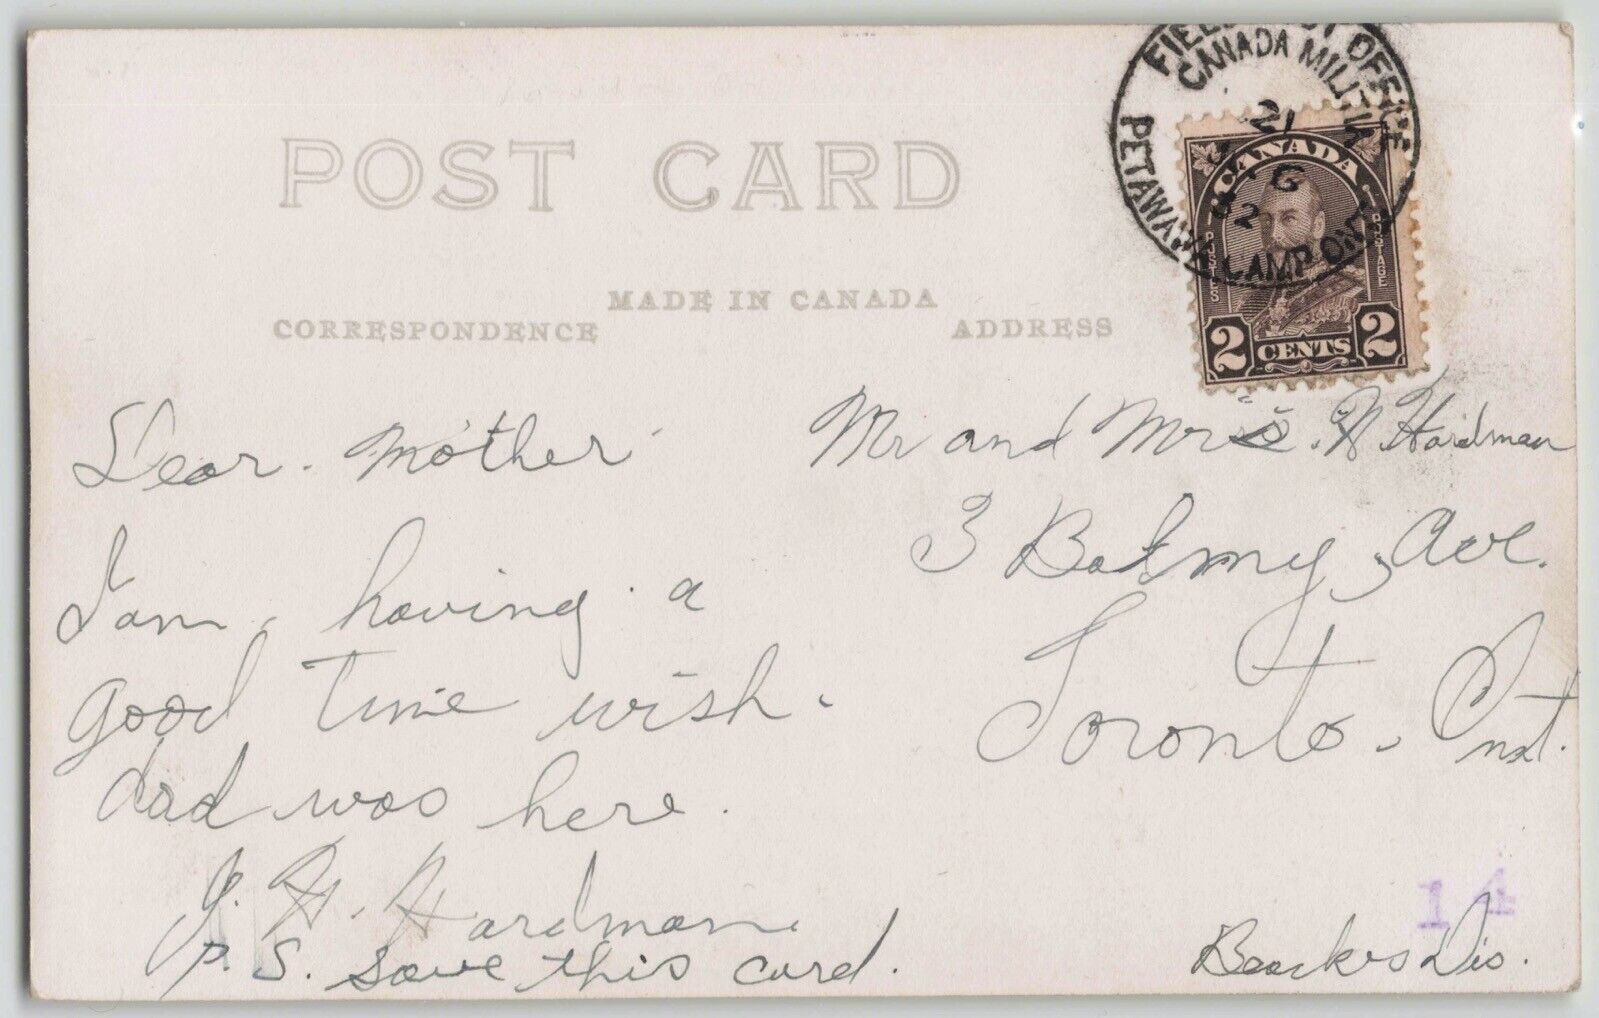 POST CARD
MADE IN CANADA
CORRESPONDENCE
ADDRESS
FIELD POST OFFICE
CANADA MILITIA
21
32
PETAWAWA CAMP ONT
CANADA
POSTES
POSTAGE
2 CENTS 2
Dear. Mother
I am. having. a
good time wish.
dad was here.
J. H. Hardman.
P.S. Save this card.
Mr and Mrs. H. Hardman
3 Balmy, Ave.
Toronto. Ont.
14
Dis.